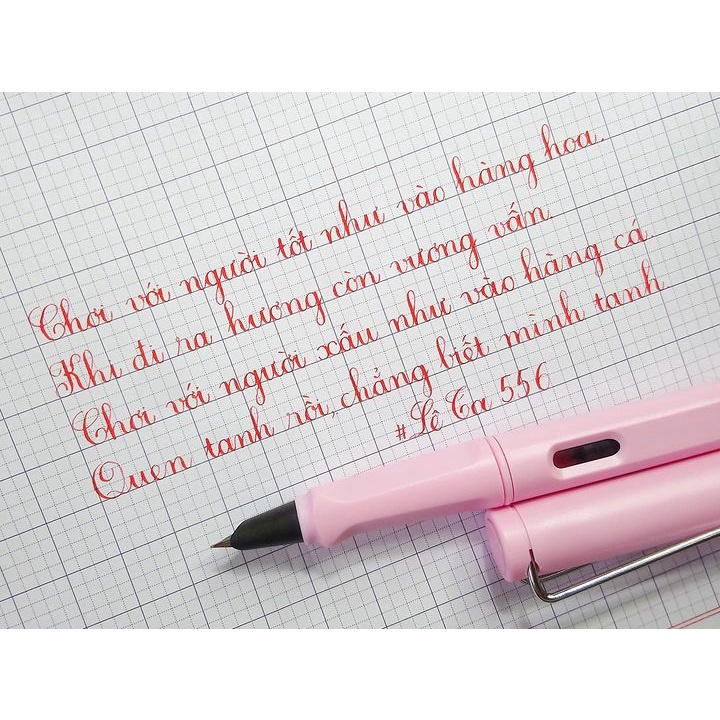 Chơi với người tốt như vào hàng hoa.
Khi đi ra hương còn vương vấn.
Chơi với người xấu như vào hàng cá.
Quen tanh rồi, chẳng biết mình tanh.
#Lê Ca 556